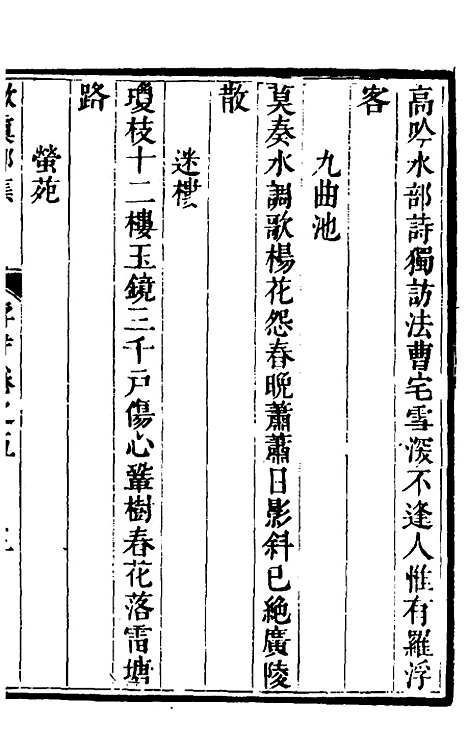 高吟水部詩獨訪法曹宅雪深不逢人惟有羅浮
客
九曲池
莫奏水調歌楊花怨春晚蕭蕭日影斜已絶廣陵
散
迷樓
瓊枝十二樓玉鏡三千戸傷心鞏樹春花落雷塘
路
螢苑